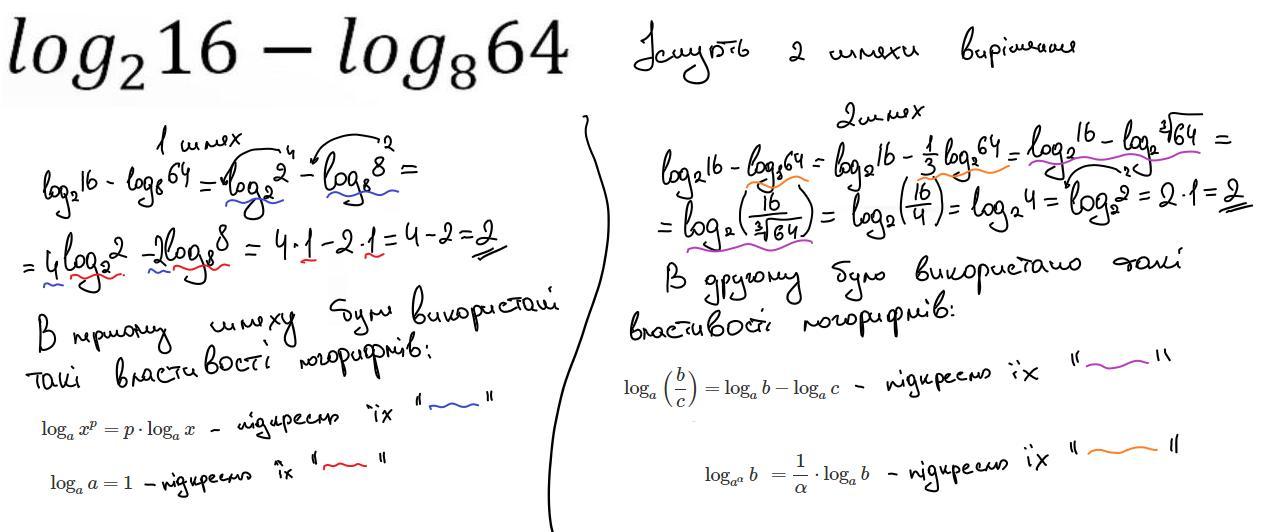 log₂16 − log₈64
Існують 2 шляхи вирішення
1 шлях
log₂16 - log₈64 = log₂2⁴ - log₈8² =
= 4log₂2 - 2log₈8 = 4·1 - 2·1 = 4 - 2 = 2
В першому шляху були використані
такі властивості логорифмів:
logₐ xᵖ = p · logₐ x - підкреслю їх " "
logₐ a = 1 - підкреслю їх " "
2 шлях
log₂16 - log₈64 = log₂16 - 1/3 log₂64 = log₂16 - log₂∛64 =
= log₂(16/∛64) = log₂(16/4) = log₂4 = log₂2² = 2·1 = 2
В другому було використано такі
властивості логорифмів:
logₐ(b/c) = logₐ b − logₐ c - підкреслю їх " "
log_{a^α} b = 1/α · logₐ b - підкреслю їх " "